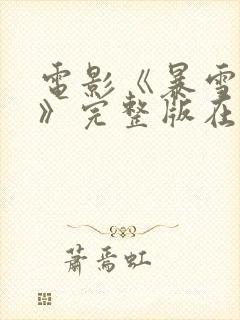 電影《暴雪
》完整版在
蕭焉虹